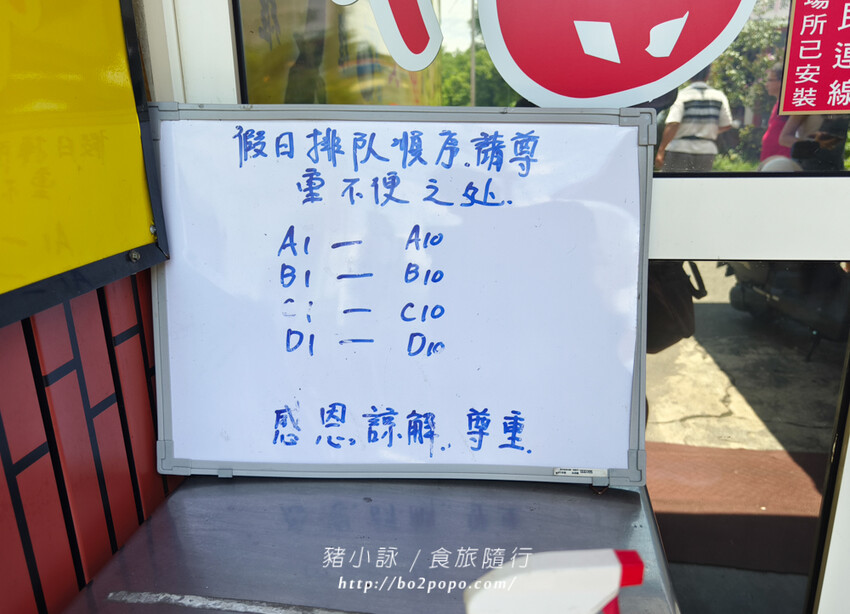 假日排队順序.請尊
重不便之处.
A1 — A10
B1 — B10
C1 — C10
D1 — D10
感恩.諒解.尊重.
場所已安裝
民連線
豬小詠 / 食旅隨行
http://bo2popo.com/